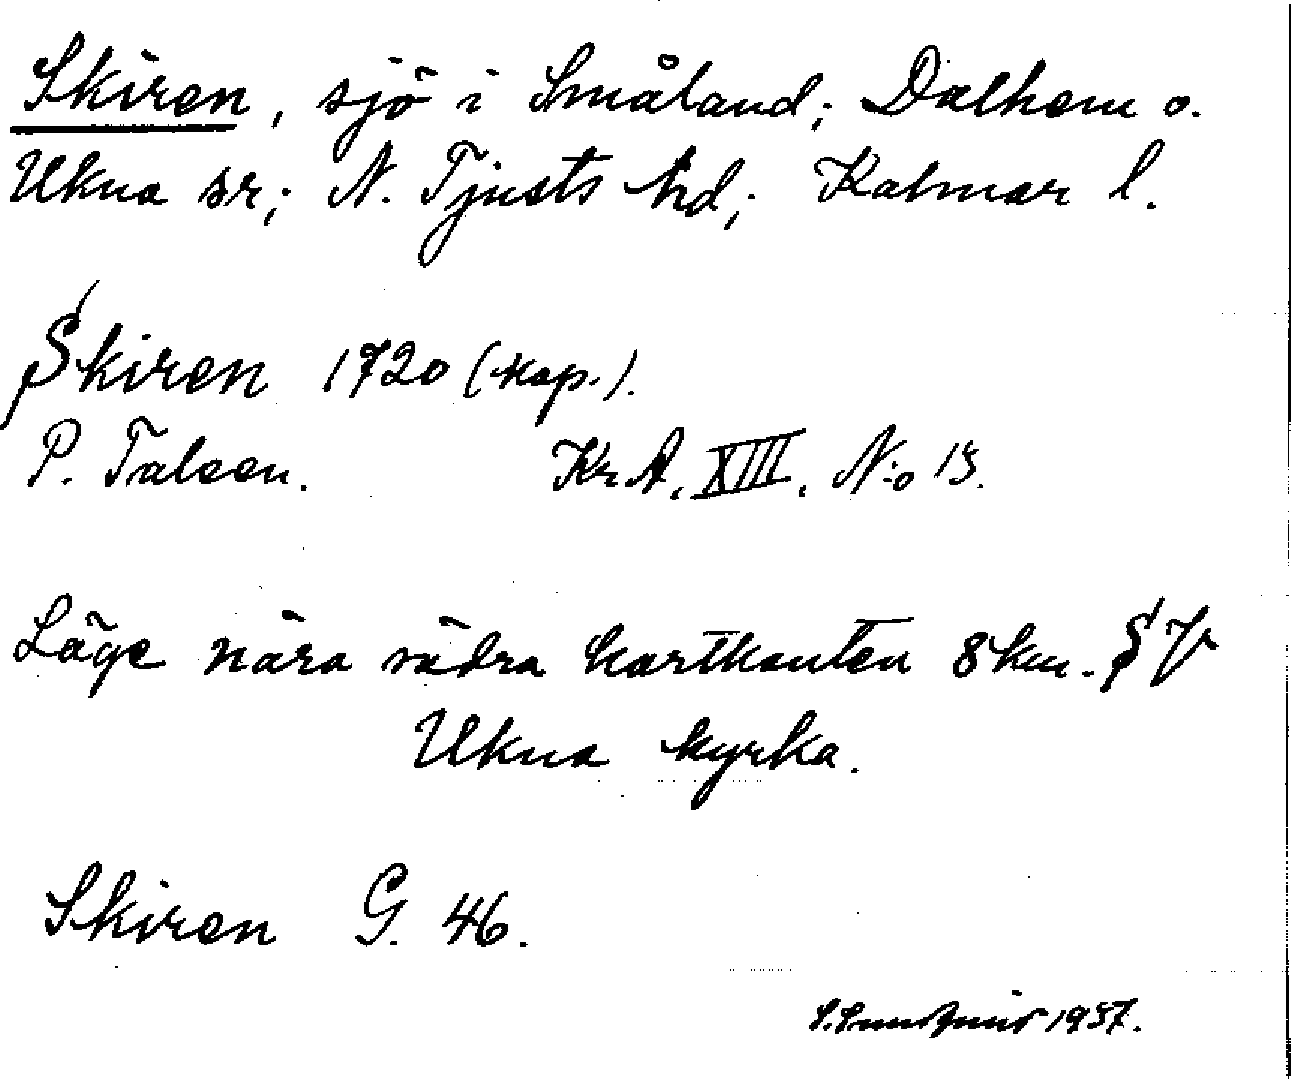 Skiren, sjö i Småland; Dalhem o.
Ukna sr; N. Tjusts hd; Kalmar l.
Skiren 1720 (kop.).
P. Taleen. KrA. XIII. N:o 15.
Läge nära södra kartkanten 8 km. SV
Ukna kyrka.
Skiren G. 46.
1937.